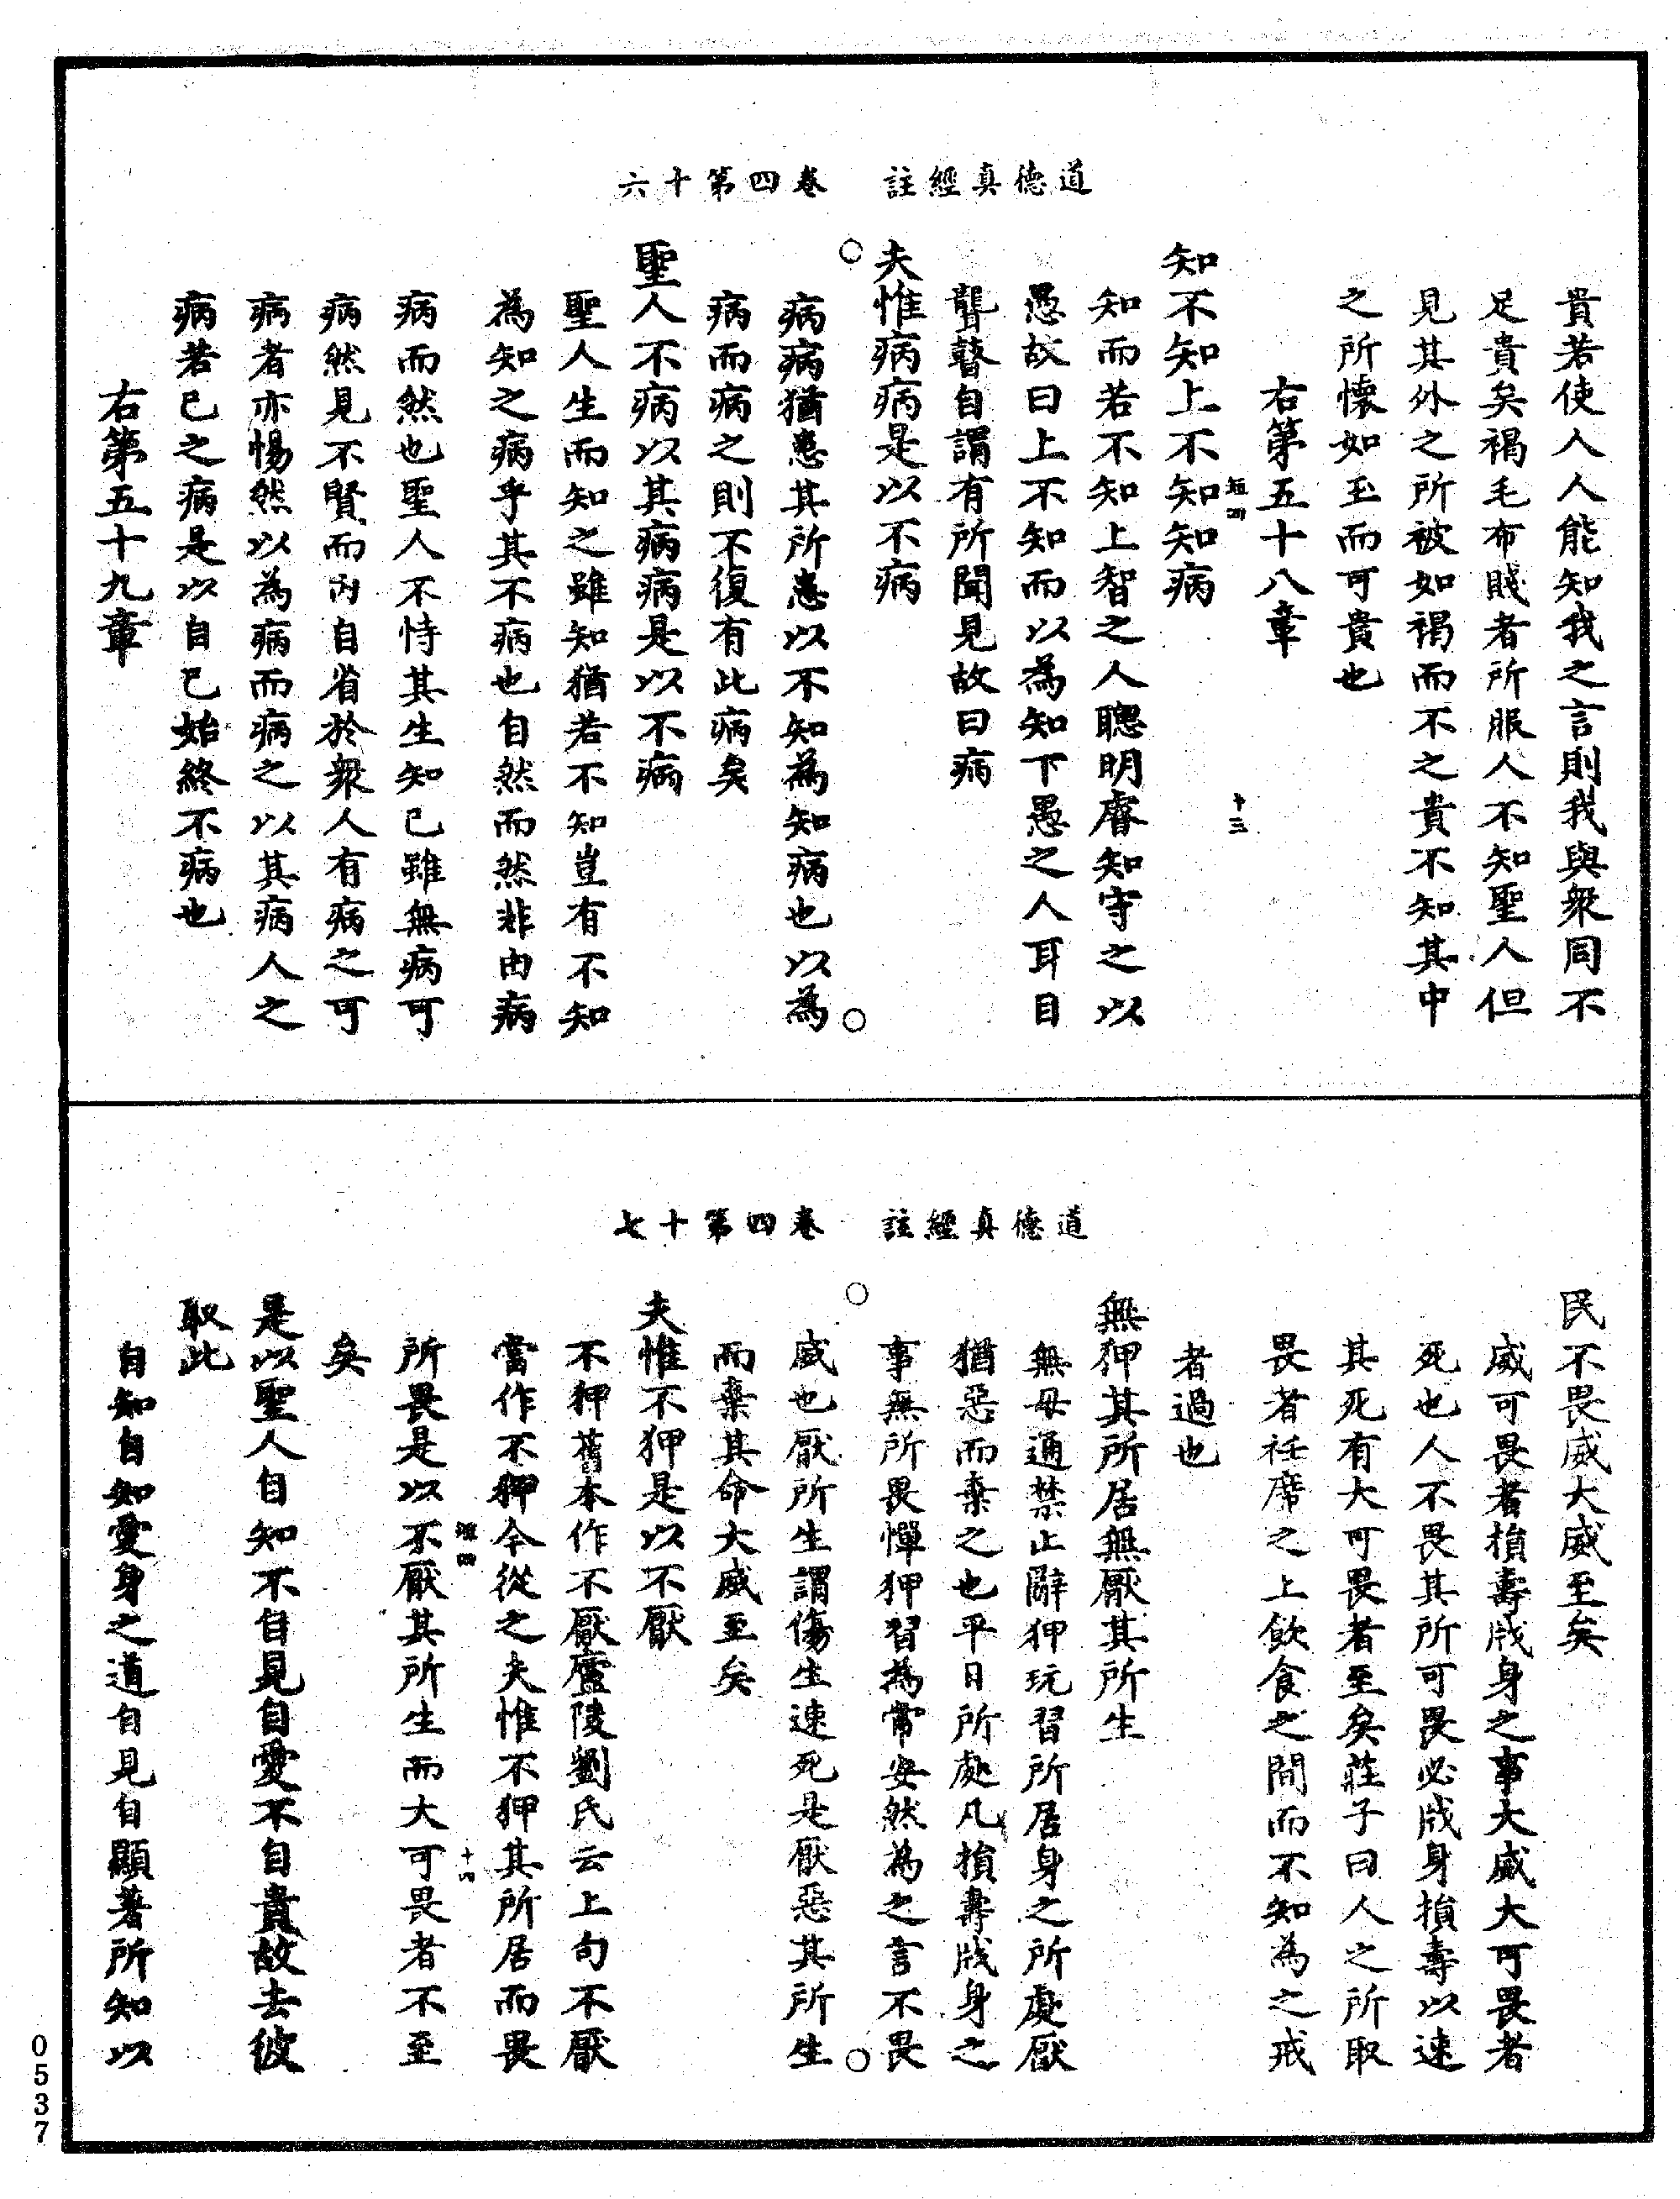 道德真經註 卷四第十六
貴若使人人能知我之言則我與衆同不
足貴矣褐毛布賤者所服人不知聖人但
見其外之所被如褐而不之貴不知其中
之所懷如玉而可貴也
右第五十八章
十三
知不知上不知知病
知而若不知上智之人聰明睿知守之以
愚故曰上不知而以為知下愚之人耳目
聾瞽自謂有所聞見故曰病
夫惟病病是以不病
病病猶患其所患以不知為知病也以為
病而病之則不復有此病矣
聖人不病以其病病是以不病
聖人生而知之雖知猶若不知豈有不知
為知之病乎其不病也自然而然非由病
病而然也聖人不恃其生知己雖無病可
病然見不賢而內自省於衆人有病之可
病者亦惕然以為病而病之以其病人之
病若己之病是以自己始終不病也
右第五十九章
道德真經註 卷四第十七
民不畏威大威至矣
威可畏者損壽戕身之事大威大可畏者
死也人不畏其所可畏必戕身損壽以速
其死有大可畏者至矣莊子曰人之所取
畏者衽席之上飲食之間而不知為之戒
者過也
無狎其所居無厭其所生
無毋通禁止辭狎玩習所居身之所處厭
猶惡而棄之也平日所處凡損壽戕身之
事無所畏憚狎習為常安然為之言不畏
威也厭所生謂傷生速死是厭惡其所生
而棄其命大威至矣
夫惟不狎是以不厭
不狎舊本作不厭廬陵劉氏云上句不厭
當作不狎今從之夫惟不狎其所居而畏
十四
所畏是以不厭其所生而大可畏者不至
矣
是以聖人自知不自見自愛不自貴故去彼
取此
自知自知愛身之道自見自顯著所知以
0537